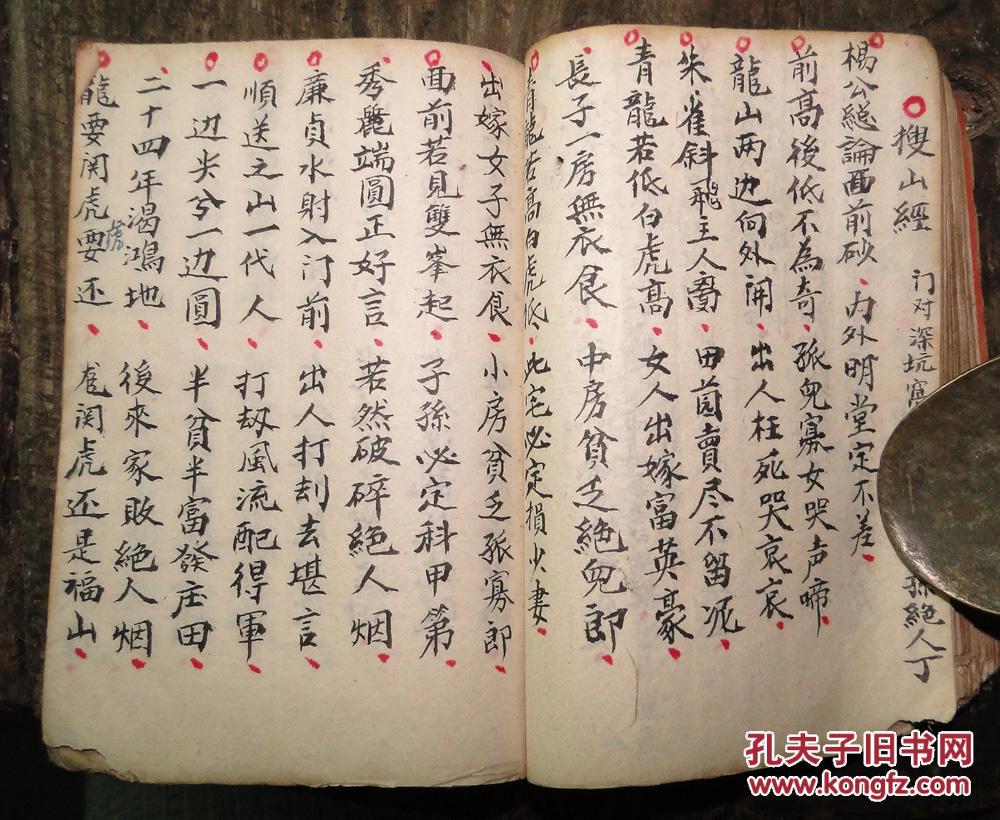 搜山經 门对深坑 孫絕人丁
楊公總論面前砂 內外明堂定不差
前高後低不為奇 孤兒寡女哭声啼
龍山两边向外開 出人枉死哭哀哀
朱雀斜飛主人 田园賣尽不留泥
青龍若低白虎高 女人出嫁富英豪
長子一房無衣食 中房貧乏絕兒郎
青龍若高白虎低 此宅必定損少妻
出嫁女子無衣食 小房貧乏孤寡郎
面前若見雙峯起 子孫必定科甲第
秀麗端圓正好言 若然破碎絕人烟
廉貞水射入门前 出人打刦去堪言
順送之山一代人 打刼風流配得軍
一边尖兮一边圓 半貧半富發庄田
二十四年渴鴻地 後來家敗絕人烟
龍要関虎要还 虎関虎还是福山
虎
孔夫子旧书网
www.kongfz.com